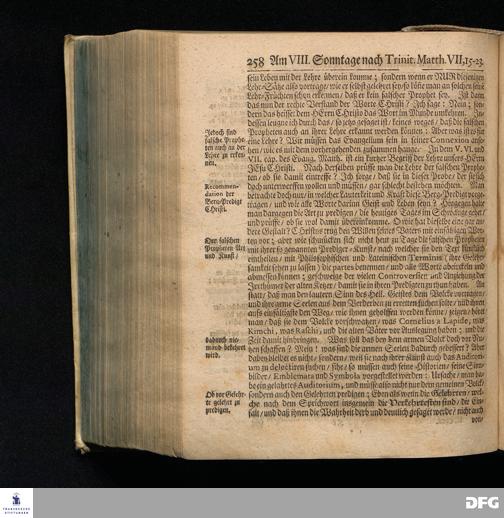 258 Am VIII. Sonntage nach Trinit. Matth. VII, 15-23.
sein Leben mit der Lehre überein komme; sondern wenn er NUR diejenigen
Lehr-Sätze also vortrage, wie er selbst gelehret sey, so könne man an solchen seine
Lehr-Früchten schon erkennen, daß er kein falscher Prophet sey. Ist dann
das nun der rechte Verstand der Worte Christi? Ich sage: Nein; son-
dern das heisset dem HErrn Christo das Wort im Munde umkehren. In-
dessen leugne ich durch das, so jetzo gesaget ist, keines weges, daß die falschen
Jedoch sind
falsche Prophe-
ten auch an der
Lehre zu erken-
nen.
Propheten auch an ihrer Lehre erkannt werden können: Aber was ist es für
eine Lehre? Wir müssen das Evangelium sein in seiner Connexion anse-
hen, wie es mit dem vorhergehenden zusammen hange. In dem V. VI. und
VII. cap. des Evang. Matth. ist ein kurtzer Begriff der Lehre unsers HErrn
JEsu Christi. Nach derselben prüffe man die Lehre der falschen Prophe-
ten, ob sie damit eintreffe?
Recommen-
dation der
Berg-Predigt
Christi.
doch unterwerffen wollen und müssen, gar schlecht bestehen möchten. Man
betrachte doch nur, in welcher Lauterkeit und Krafft diese Berg-Predigt vorge-
tragen, und wie alle Worte darinn Geist und Leben seyn? Hergegen halte
man dargegen die Art zu predigen, die heutiges Tages im Schwange gehet,
und prüfe, ob sie wol damit übereinkomme. O wie hat dieselbe eine gar an-
dere Gestalt? Christus trug den Willen seines Vaters mit einfältigen Wor-
Der falschen
Propheten Art
und Kunst,
ten vor; aber wie schmücken sich nicht heut zu Tage die falschen Propheten
mit ihrer so genannten Prediger-Kunst, nach welcher sie den Text künstlich
eintheilen, mit Philosophischen und Lateinischen Terminis (ihre Gelehr-
samkeit sehen zu lassen) die partes benennen, und alle Worte abzirckeln und
abmessen können; geschweige der vielen Controversien und Anziehung der
Irrthümer der alten Ketzer, damit sie in ihren Predigten zu thun haben. An
statt, daß man den lautern Sinn des Heil. Geistes dem Volcke vortragen,
und ihre arme Seelen aus dem Verderben zu erretten suchen solte, und ihnen
aufs einfältigste den Weg, wie ihnen geholffen werden könne, zeigen, höret
man, daß sie dem Volcke vorschwatzen, was Cornelius a Lapide, was
Kimchi, was Raschi, und die alten Väter vor Auslegung haben; und die
Zeit damit hinbringen. Was soll das den dem armen Volck doch vor Nu-
dadurch nie-
mand bekehret
wird.
tzen schaffen? Mein! was sind die armen Seelen dadurch gebessert? Aber
dabey bleibet es nicht, sondern, weil sie nach ihrer Kunst auch das Auditori-
um zu delectiren suchen, sihe, so müssen auch seine Historien, seine Sinn-
bilder, Emblemata und Symbola vorgestellet werden: Ursache, man ha-
be ein gelahrtes Auditorium, und müsse also nicht nur dem gemeinen Volck,
Ob vor Gelehr-
te gelehrt zu
predigen.
sondern auch den Gelehrten predigen; Eben als wenn die Gelehrten, wel-
che nach dem Sprichwort insgemein die Verkehrtesten sind, die Ein-
falt, und daß ihnen die Wahrheit derb und deutlich gesaget werde, nicht auch
von-
FRANCKESCHE
STIFTUNGEN
DFG